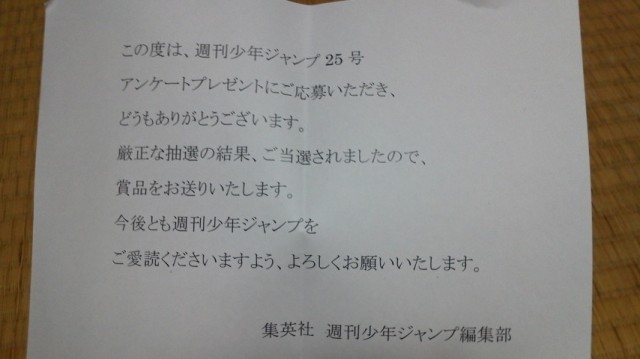 この度は、週刊少年ジャンプ 25 号
アンケートプレゼントにご応募いただき、
どうもありがとうございます。
厳正な抽選の結果、ご当選されましたので、
賞品をお送りいたします。
今後とも週刊少年ジャンプを
ご愛読くださいますよう、よろしくお願いいたします。
集英社 週刊少年ジャンプ編集部